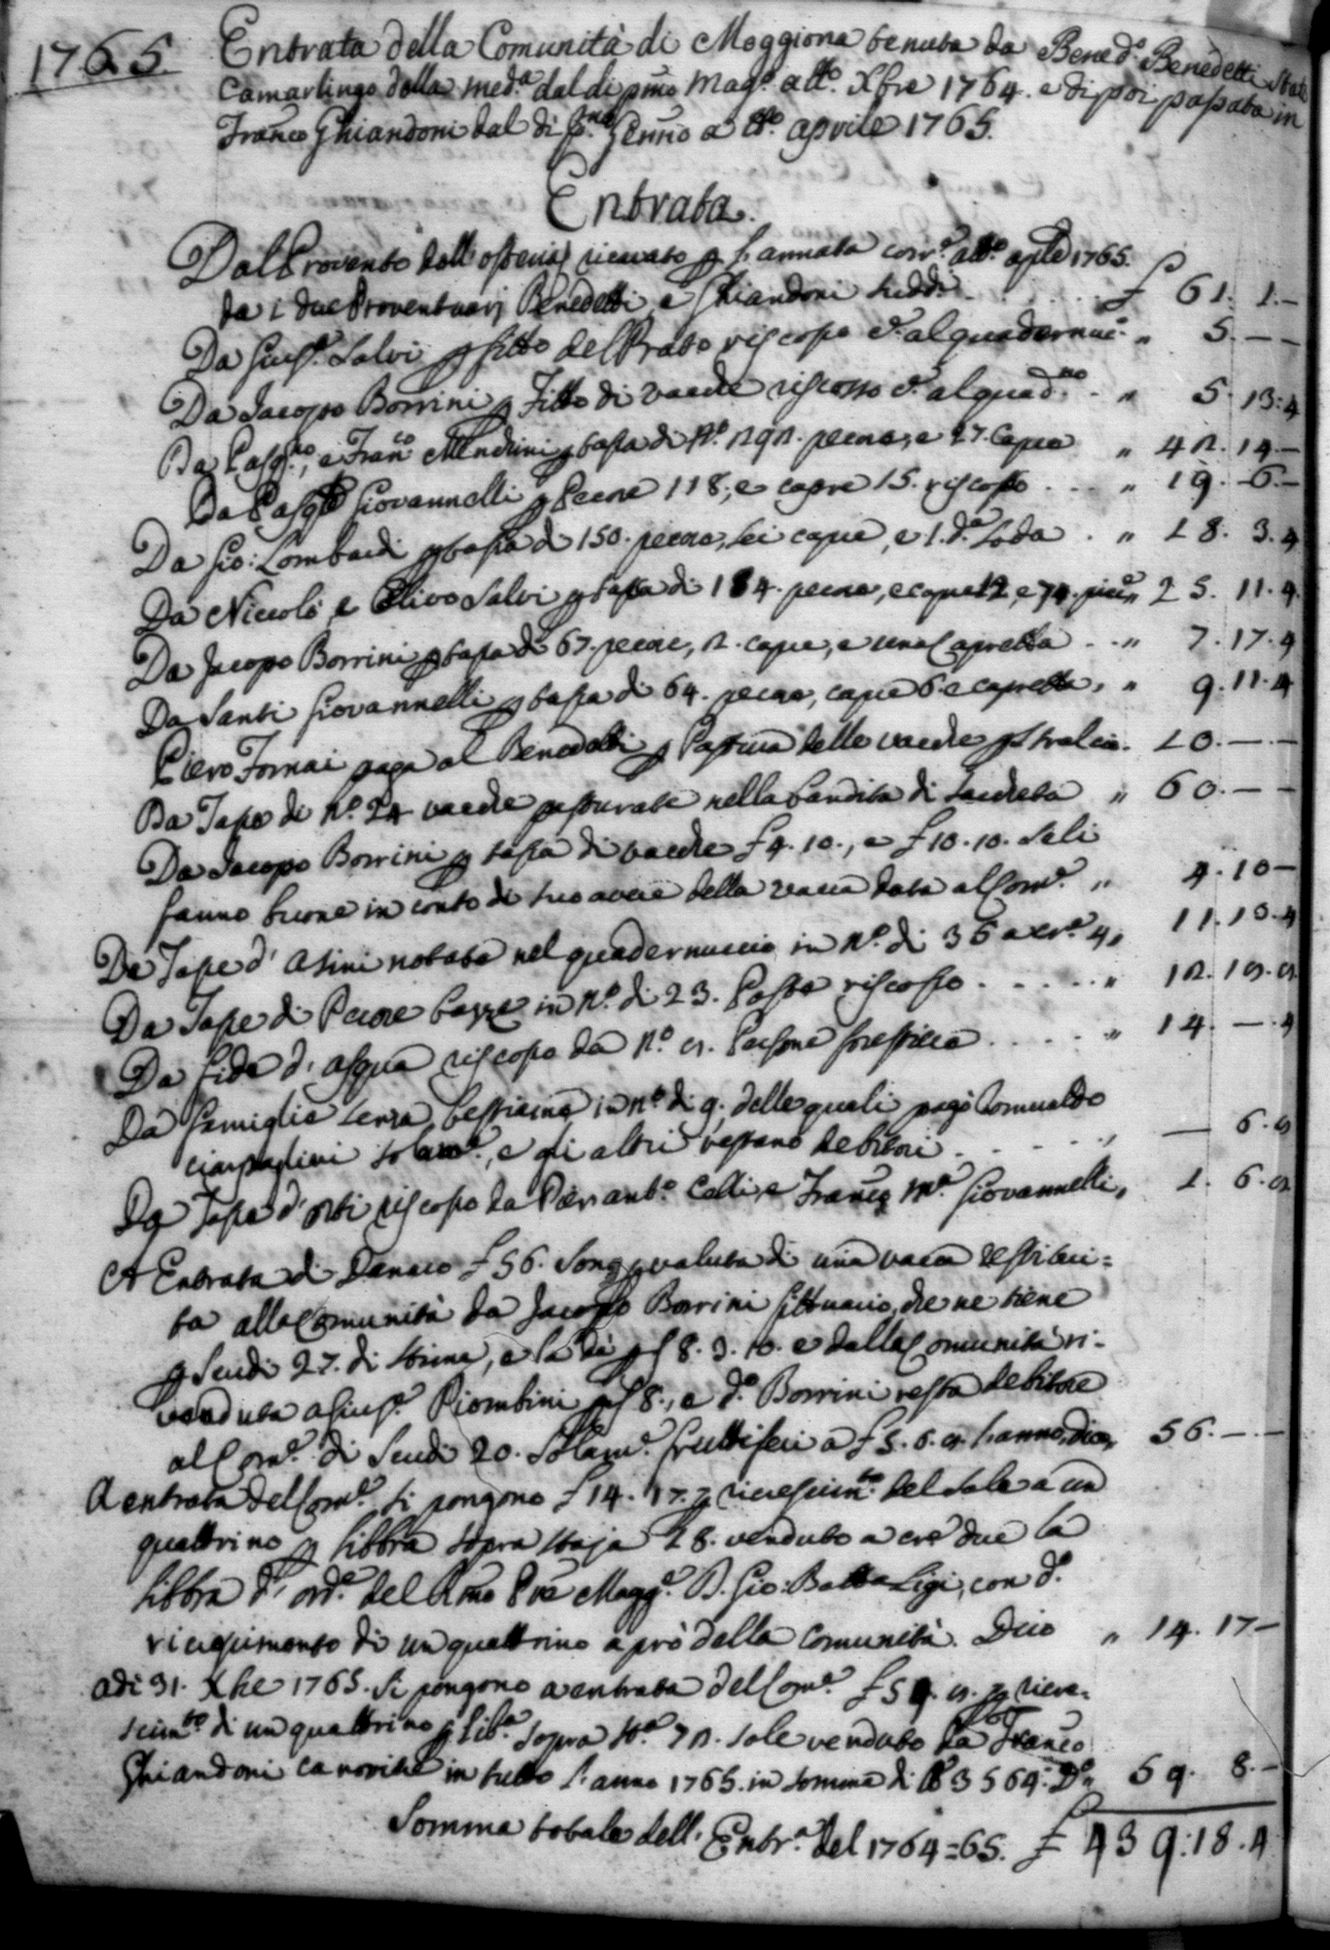 1765.
Entrata della Comunità di Moggiona tenuta da Bened.º Benedetti
Camarlingo della med.ª dal di pmo Mag.º a tt.º Xbre 1764. e di poi passata in
Franco Ghiandoni dal di Genno a tt.º aprile 1765.
Entrata.
Dal Provento dell'osteria ricavato p l'annata com.e a tt.º aple 1765.
da i due Proventuarj Benedetti, e Ghiandoni sudd.i £ 61. 1.-
Da Gius.e Salvi p fitto del Prato riscosso c.e al quadernuc.º " 5.--
Da Jacopo Borrini p Fitto di vacche riscosso c.e al quad.no " 5.13.4
Da Pasq.no, e Fran.co Mendrini p tassa di N.º 292. pecore, e 27. Capre " 42.14-
Da Pasq.e Giovannelli p Pecore 118, e capre 15. riscosso " 19.-6.-
Da Gio: Lombardi p tassa di 150. pecore, sei capre, e 1.d.a soda " 18.3.4
Da Niccolò, e Olivo Salvi p tassa di 184. pecore, e capre 12, e 74. " 25.11.4.
Da Jacopo Borrini p tassa di 67. pecore, 2. capre, e una Capretta " 7.17.4
Da Santi Giovannelli p tassa di 64. pecore, capre 6. e caprette, " 9.11.4
Piero Fornai paga al Benedetti p Pastura delle vacche p stralcio. 10.--
Da Tasse di N.º 24 vacche pasturate nella bandita di " 60.--
Da Jacopo Borrini p tassa di vacche £ 4.10., e £ 10.10. seli
fanno buone in conto di suo avere della vacca data al Com.e " 4.10-
Da Tasse d'Asini notata nel quadernuccio in N.º di 35 a cr.e 4 " 11.13.4
Da Tasse di Pecore bazze in N.º di 23. Poste riscosso " 12.19.
Da fida d'acqua riscossa da N.º Persone forestiere " 14.-.4
Da famiglie senza bestiame in n.º di 9. delle quali pagò Romualdo
Ciampaglini solam.e, e gli altri restano debitori - 6.
Da Tassa d'orti riscosso da Pier ant.º Celli, e Franco M.ª Giovannelli, 1. 6.
A Entrata di Danaro £ 56. sono p valuta di una vacca restitui=
ta alla Comunità da Jacopo Borrini fittuario, che ne tiene
p Scudi 27. di stima, e la dà p S 8.3.10. e dalla Comunità ri-
venduta a Gius.e Piombini p S 8., e d.º Borrini resta debitore
al Com.e di Scudi 20. solam.e fruttiferi a £ 5.6. l'anno, dico, 56.--
A entrata del Com.e si pongono £ 14.17. p ricrescim.to del sale a un
quattrino p libbra sopra staja 18. venduto a crè due la
libbra d'ord.e del Rmo Pre Magg.e D. Gio: Batta Ligi, con d.º
ricrescimento di un quattrino a prò della Comunità. Dico " 14.17-
adi 31. Xbre 1765. si pongono a entrata del Com.e £ 59. p ricre=
scim.to di un quattrino p lib.ª sopra st.ª 72. sale venduto da Franco
Ghiandoni canovire in tutto l'anno 1765. in somma di lb 3564. D.º " 59. 8.-
Somma totale dell'Entr.ª del 1764=65. £ 439:18.4